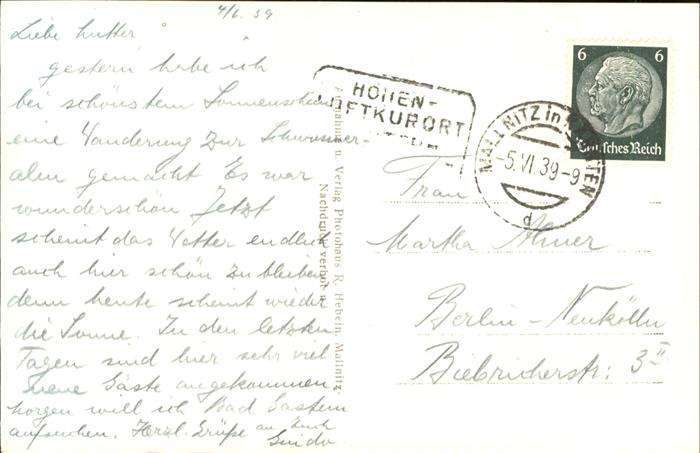 4/6. 39
Liebe Mutter
gestern habe ich
bei schönstem Sonnenschein
eine Wanderung zur
alm gemacht Es war
wunderschön Jetzt
scheint das Wetter endlich
auch hier schön zu bleiben
denn heute scheint wieder
die Sonne. In den letzten
Tagen sind hier sehr viel
neue Gäste angekommen.
morgen will ich Bad Gastein
aufsuchen. Herzl. Grüße an Euch
Guido
Verlag Photohaus R. Hebein, Mallnitz.
Nachdruck verboten
HÖHEN-
LUFTKURORT
MALLNITZ in KÄRNTEN
-5.VI.39-9
d
6 6
Deutsches Reich
Frau
Martha
Berlin-Neukölln
Biebricherstr: 3 II